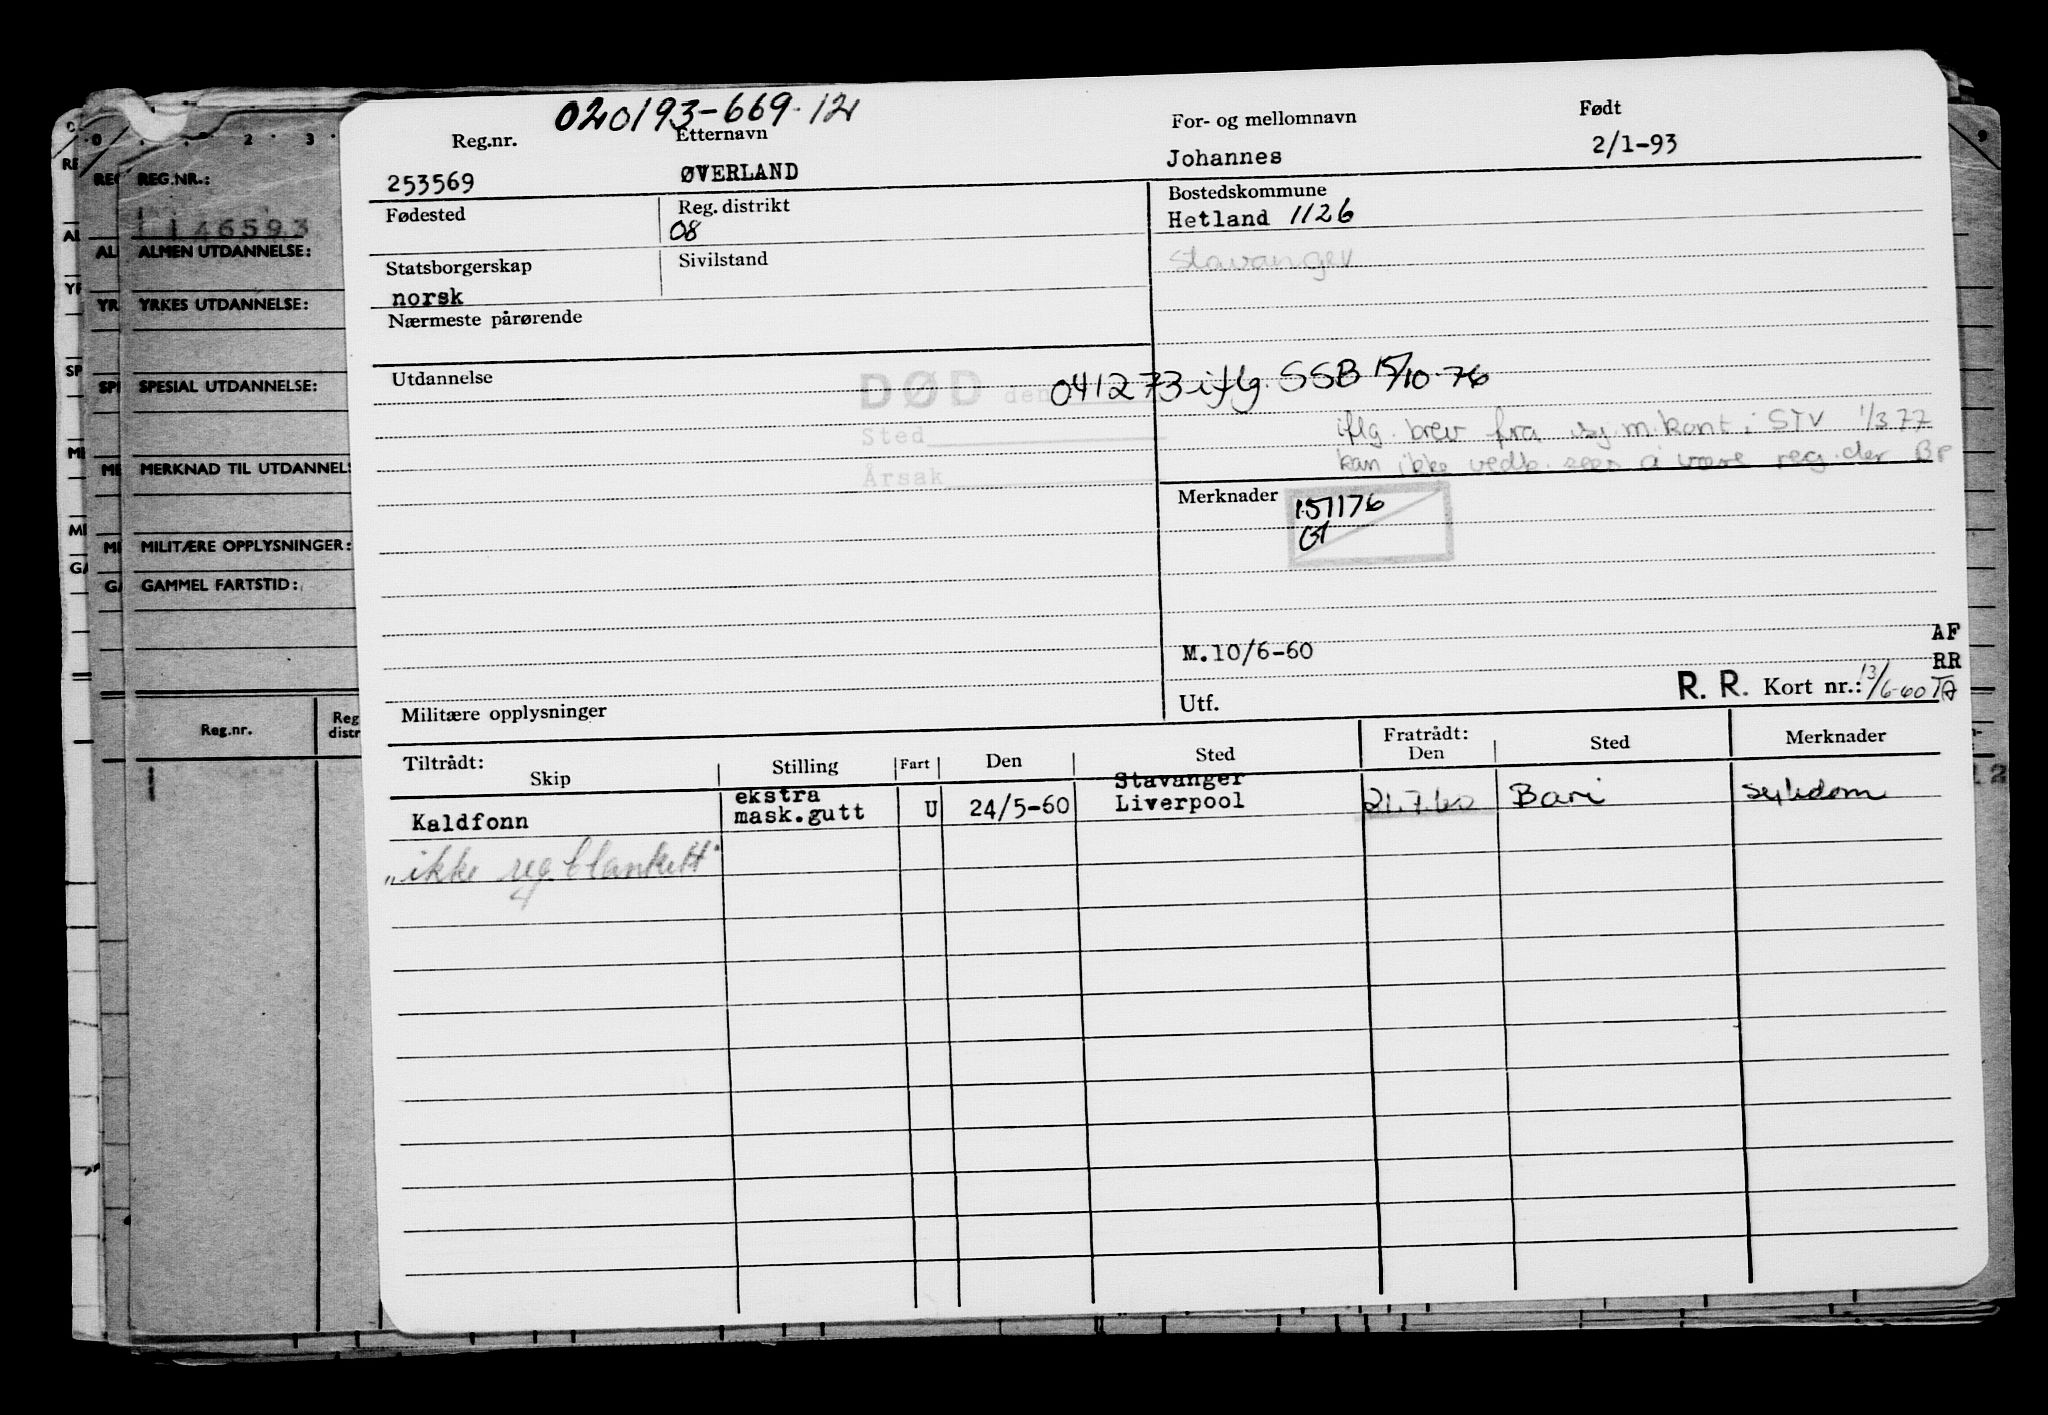 020193-669.12
Reg.nr. Etternavn For- og mellomnavn Født
253569 ØVERLAND Johannes 2/1-93
Fødested Reg. distrikt Bostedskommune
08 Hetland 1126
Statsborgerskap Sivilstand Stavanger
norsk
Nærmeste pårørende
Utdannelse
DØD den 041273 iflg. SSB 15/10-76
Sted
Årsak
iflg. brev fra m.kont i STV 1/3 77
kan ikke vedk. sees å være reg. der BP
Merknader
151176
M.10/6-60
AF
RR
R. R. Kort nr.: 13/6-60
Utf.
Militære opplysninger
Tiltrådt: Fratrådt:
Skip Stilling Fart Den Sted Den Sted Merknader
ekstra Stavanger
Kaldfonn mask.gutt U 24/5-60 Liverpool 21.7.60 Bari sykdom
"ikke reg. blankett"
REG.NR.:
146593
ALMEN UTDANNELSE:
YRKES UTDANNELSE:
SPESIAL UTDANNELSE:
MERKNAD TIL UTDANNELS
MILITÆRE OPPLYSNINGER:
GAMMEL FARTSTID:
Reg.nr. Reg
distr